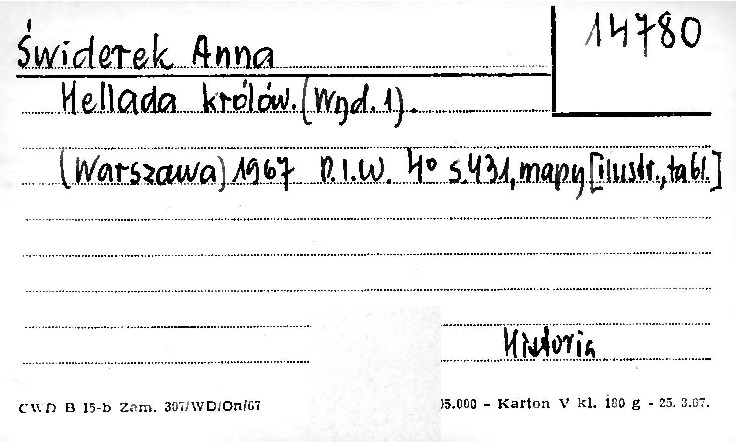 14780
Świderek Anna
Hellada królów. (Wyd. 1).
(Warszawa) 1967 P.I.W. 4° s. 431, mapy [ilustr., tabl.]
Historia
CWD B 15-b Zam. 307/WD/On/67
05.000 - Karton V kl. 180 g - 25. 3.67.